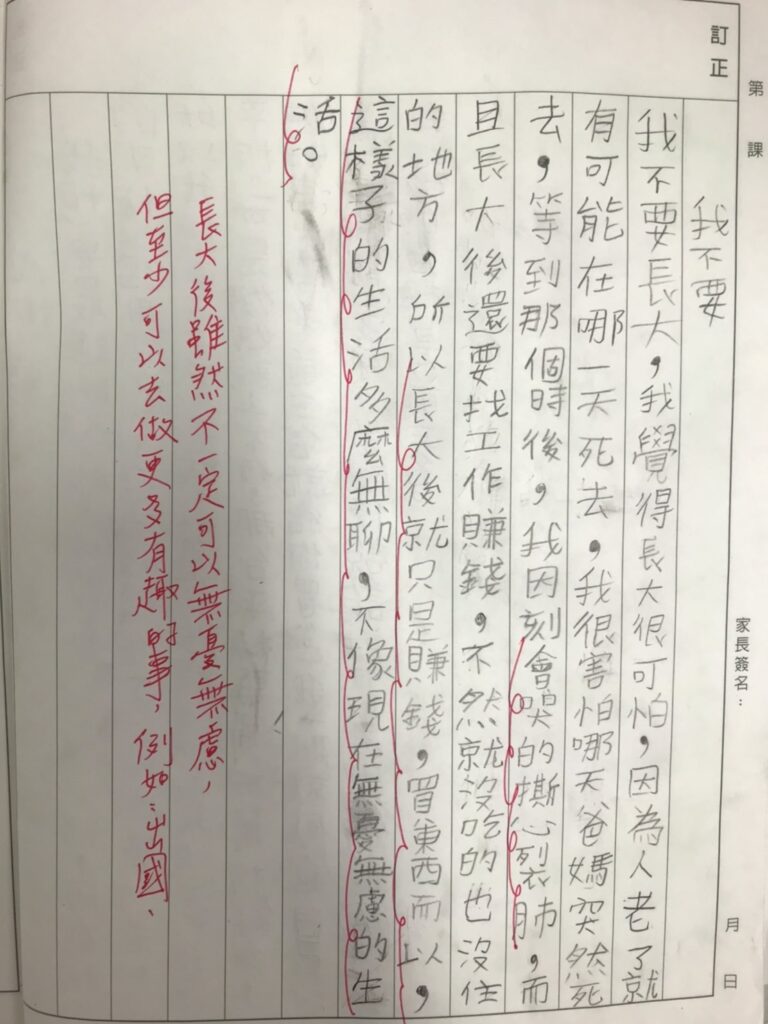 訂正
第 課
家長簽名：
月 日
我不要
我不要長大，我覺得長大很可怕，因為人老了就
有可能在哪一天死去，我很害怕哪天爸媽突然死
去，等到那個時後，我因刻會哭的撕心裂肺，而
且長大後還要找工作賺錢，不然就沒吃的也沒住
的地方，所以長大後就只是賺錢，買東西而以，
這樣子的生活多麼無聊，不像現在無憂無慮的生
活。
長大後雖然不一定可以無憂無慮，
但至少可以去做更多有趣的事，例如：出國、